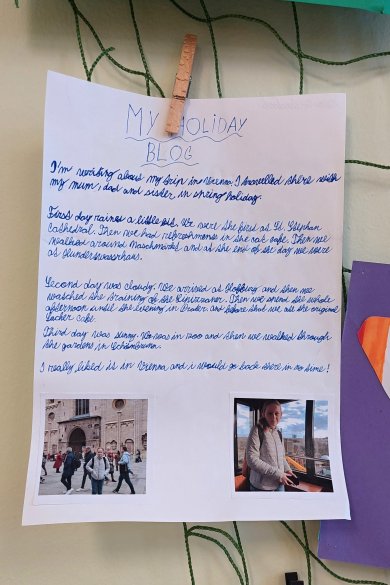 MY HOLIDAY
BLOG
I'm writing about my trip in Vienna. I travelled there with
my mum, dad and sister in spring holiday.
First day rained a little bit. We were the first at St. Stephan
Cathedral. Then we had refreshments in the cafe. Then we
walked around Naschmarkt and at the end of the day we were
at Hundertwasserhaus.
Second day was cloudy. We arrived at and then we
watched the training of the Then we spend the whole
afternoon until the evening in Prater and before that we ate the original
Sacher cake.
Third day was sunny. We was in zoo and then we walked through
the gardens in Schönbrunn.
I really liked it in Vienna and i would go back there in no time!